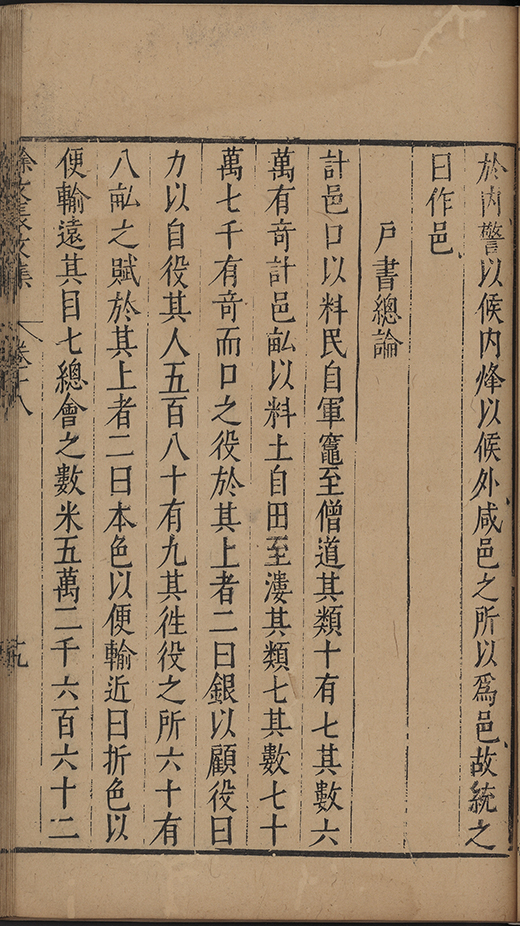 於内警以候内烽以候外咸邑之所以爲邑故統之
曰作邑
戸書總論
計邑口以料民自軍竈至僧道其類十有七其數六
萬有奇計邑畝以料土自田至漊其類七其數七十
萬七千有奇而口之役於其上者二曰銀以顧役曰
力以自役其人五百八十有九其徃役之所六十有
八畝之賦於其上者二曰本色以便輸近曰折色以
便輸遠其目七總會之數米五萬二千六百六十二
徐文長文集 卷十八